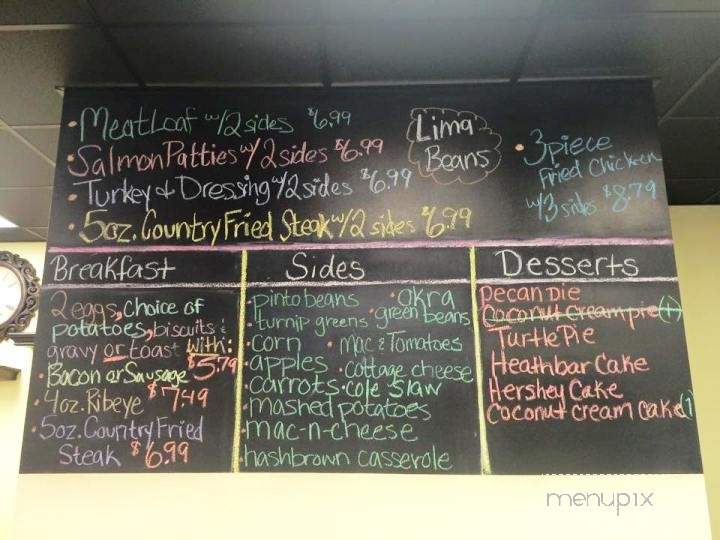 • Meatloaf w/2 sides $6.99
• Salmon Patties w/ 2 sides $6.99
• Turkey & Dressing w/2 sides $6.99
• 5oz. Country Fried Steak w/ 2 sides $6.99
Lima
Beans
• 3 piece
fried chicken
w/3 sides $8.79
Breakfast
2 eggs, choice of
potatoes, biscuits &
gravy or toast with:
• Bacon or Sausage $5.79
• 4oz. Ribeye $7.49
• 5oz. Country Fried
Steak $6.99
Sides
• pinto beans • okra
• turnip greens • green beans
• corn • Mac & Tomatoes
• apples • cottage cheese
• carrots • cole slaw
• mashed potatoes
• mac-n-cheese
• hashbrown casserole
Desserts
pecan pie
Coconut cream pie (1)
Turtle Pie
Heathbar Cake
Hershey Cake
Coconut cream cake (1
menupix